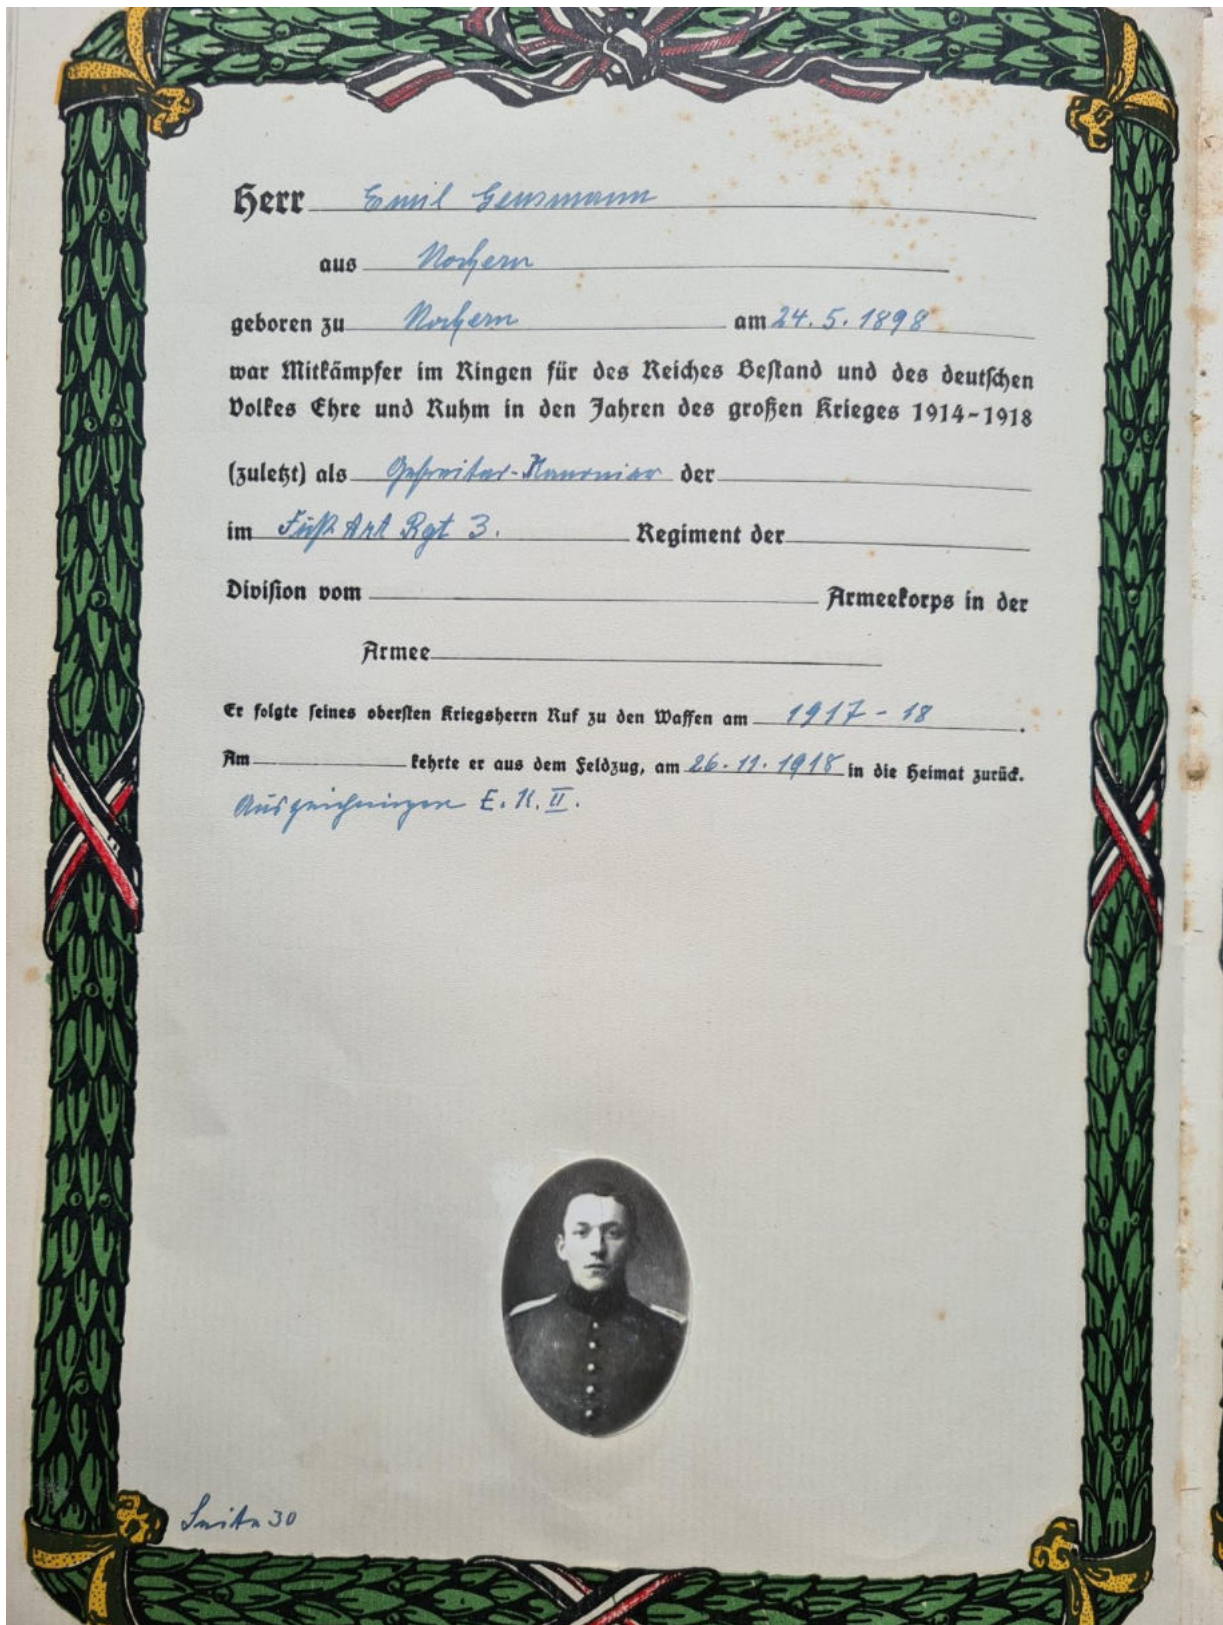 Herr Emil Gensmann
aus Nochern
geboren zu Nochern am 24. 5. 1898
war Mitkämpfer im Ringen für des Reiches Bestand und des deutschen
Volkes Ehre und Ruhm in den Jahren des großen Krieges 1914-1918
(zuletzt) als Gefreiter-Kanonier der
im Fuß Art Rgt 3. Regiment der
Division vom Armeekorps in der
Armee
Er folgte seines obersten Kriegsherrn Ruf zu den Waffen am 1917 - 18.
Am kehrte er aus dem Feldzug, am 26. 11. 1918 in die Heimat zurück.
Auszeichnungen E. K. II.
Seite 30